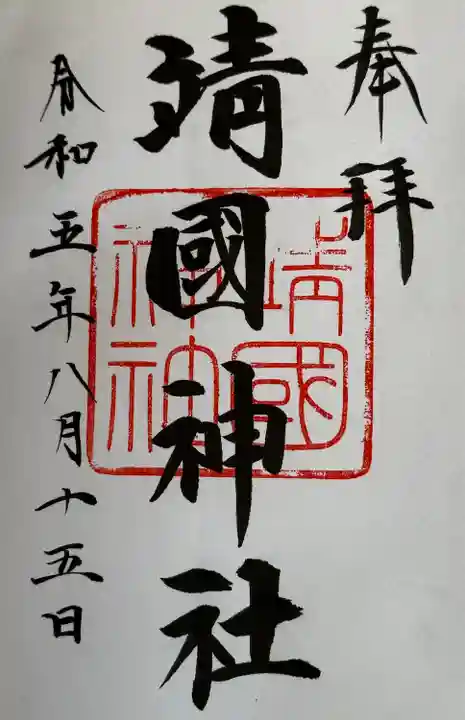 奉拝
靖國神社
靖國
神社
令和五年八月十五日